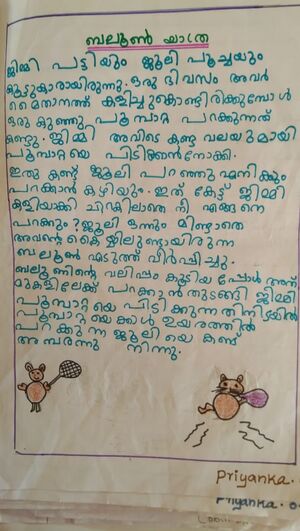 ബലൂൺ യാത്ര
ജിമ്മി പട്ടിയും ജൂലി പൂച്ചയും
കൂട്ടുകാരായിരുന്നു. ഒരു ദിവസം അവർ
മൈതാനത്ത് കളിച്ചുകൊണ്ടിരിക്കുമ്പോൾ
ഒരു കുഞ്ഞു പൂമ്പാറ്റ പറക്കുന്നത്
കണ്ടു. ജിമ്മി അവിടെ കണ്ട വലയുമായി
പൂമ്പാറ്റയെ പിടിക്കാൻ നോക്കി.
ഇതു കണ്ട് ജൂലി പറഞ്ഞു എനിക്കും
പറക്കാൻ കഴിയും. ഇത് കേട്ട് ജിമ്മി
കളിയാക്കി ചിറകില്ലാതെ നീ എങ്ങനെ
പറക്കും? ജൂലി ഒന്നും മിണ്ടാതെ
അവന്റെ കൈയ്യിലുണ്ടായിരുന്ന
ബലൂൺ എടുത്ത് വീർപ്പിച്ചു.
ബലൂണിന്റെ വലിപ്പം കൂടിയപ്പോൾ അത്
മുകളിലേക്ക് പറക്കാൻ തുടങ്ങി ജിമ്മി
പൂമ്പാറ്റയെ പിടിക്കുന്നതിനിടയിൽ
പൂമ്പാറ്റയെക്കാൾ ഉയരത്തിൽ
പറക്കുന്ന ജൂലിയെ കണ്ട്
അമ്പരന്നു നിന്നു.
Priyanka.
Priyanka.